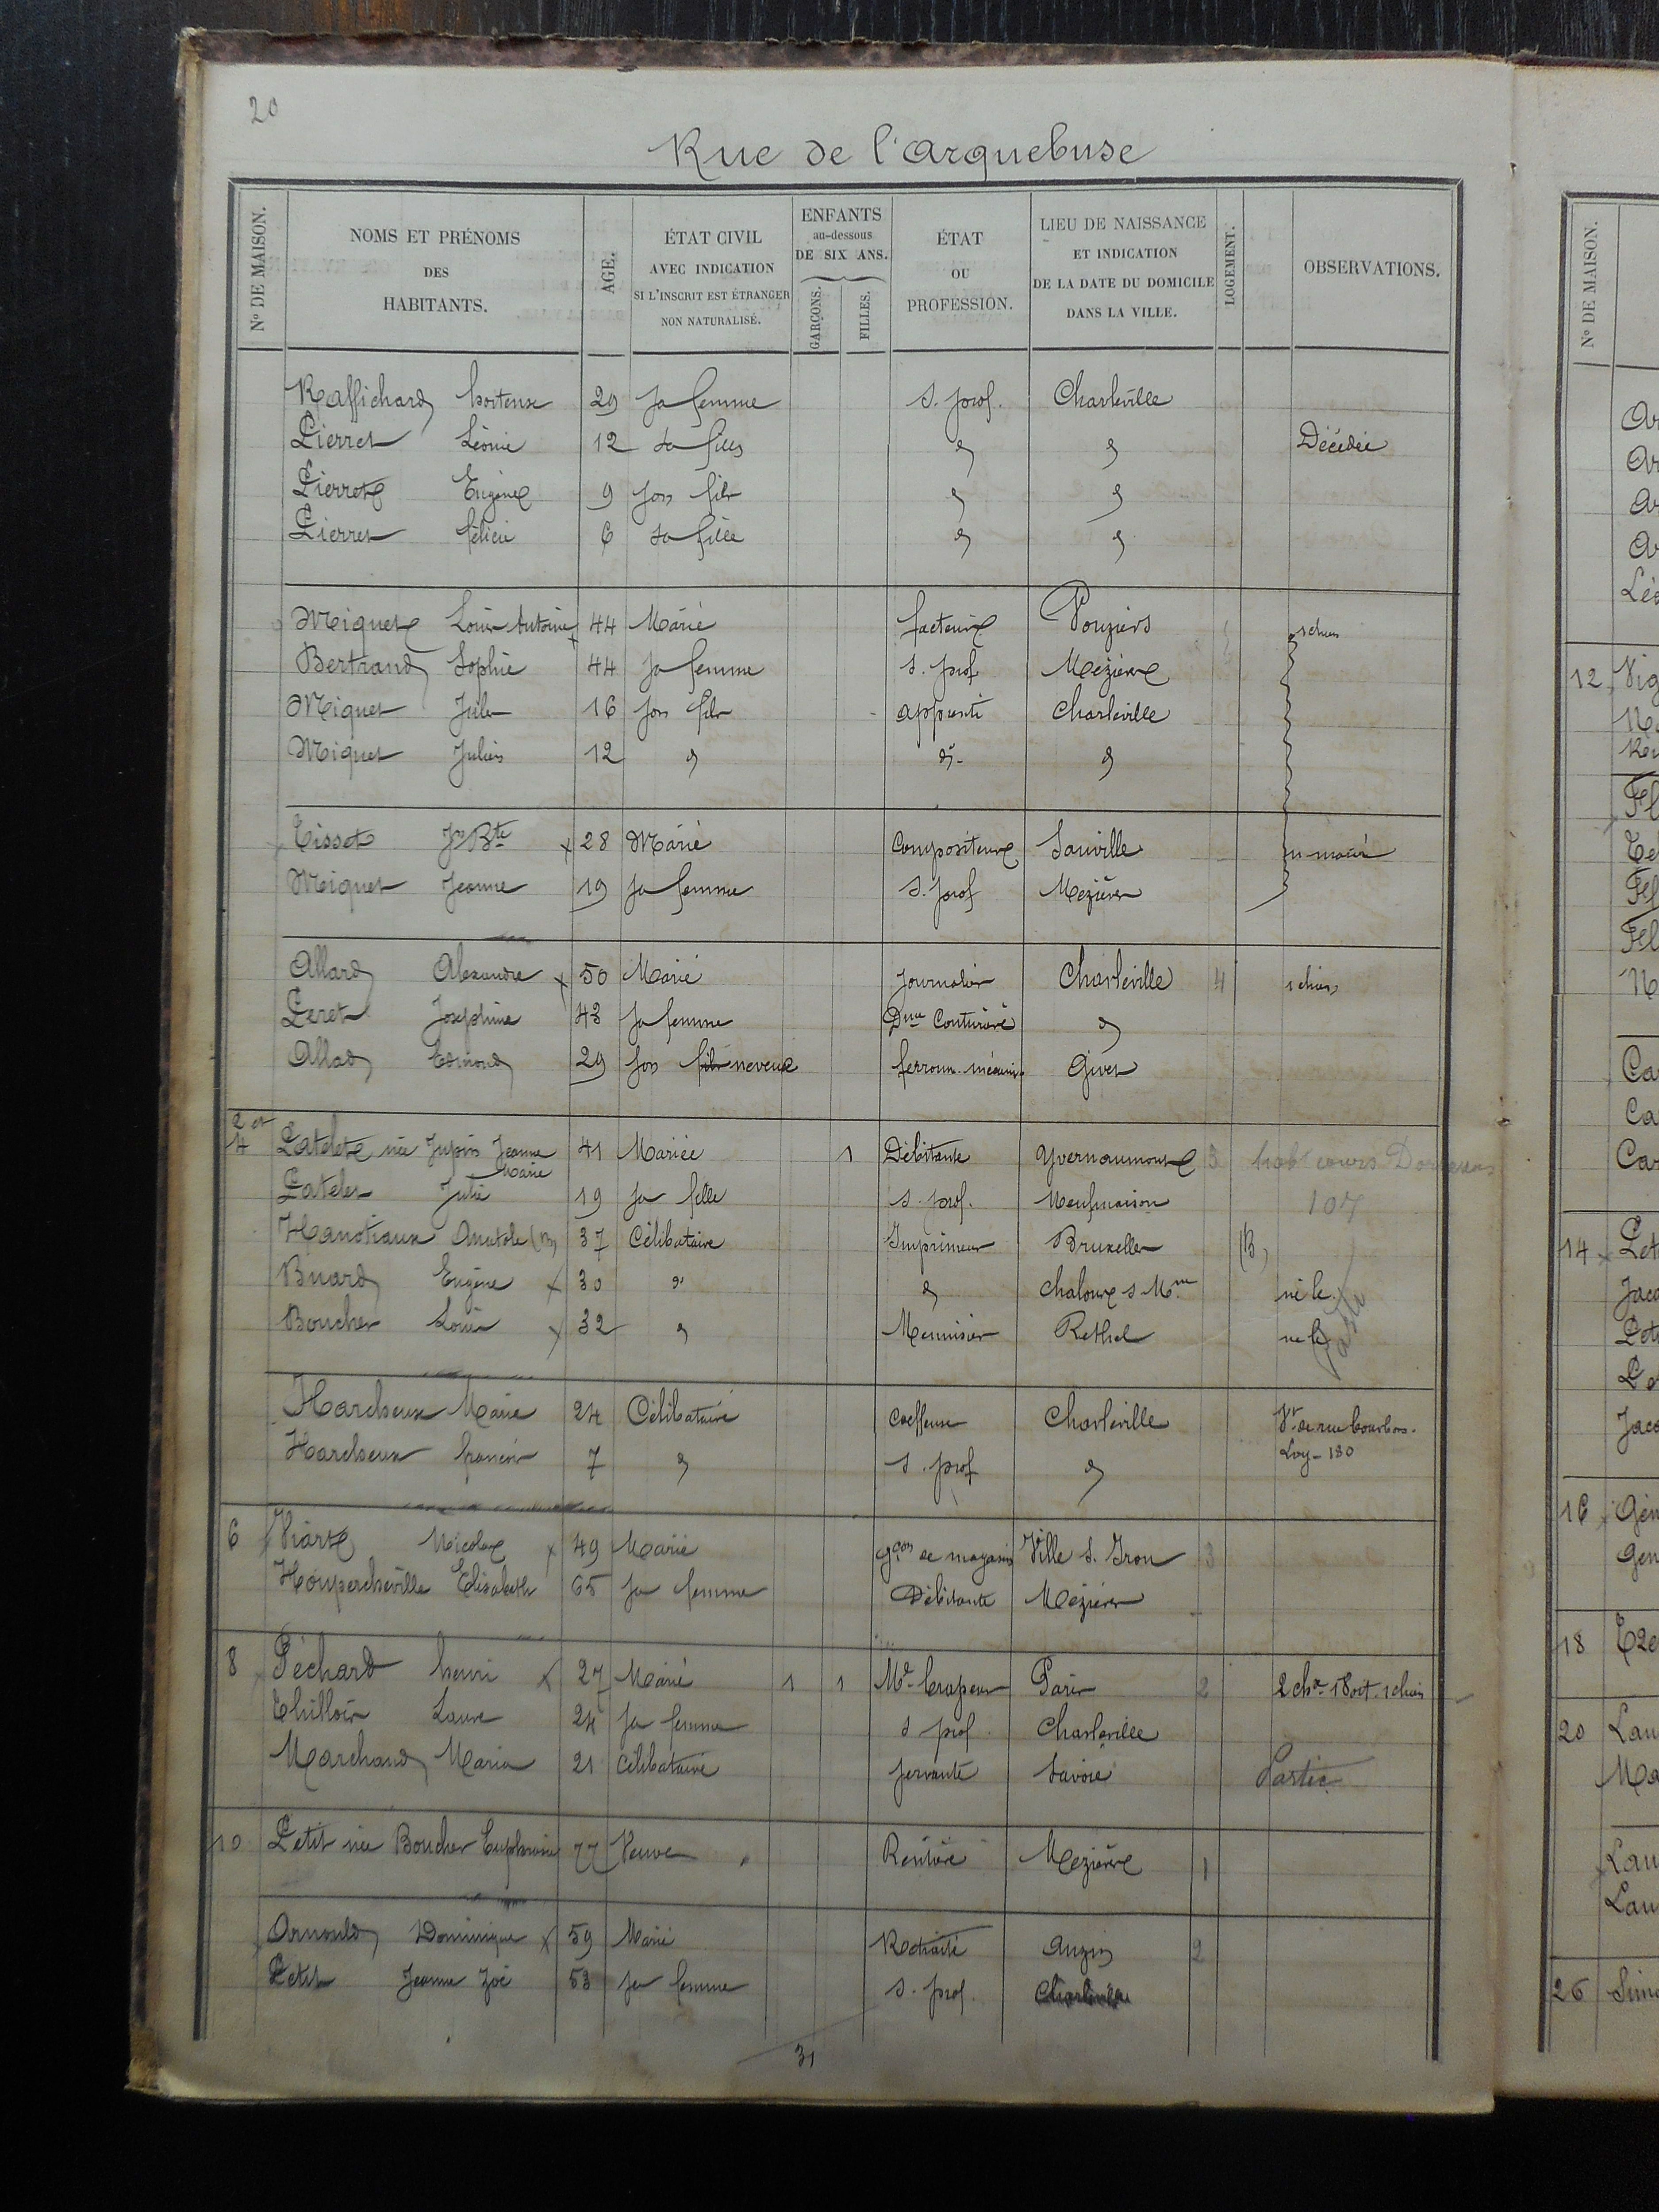 20
Rue de l'arquebuse
Nº DE MAISON. NOMS ET PRÉNOMS DES HABITANTS. AGE. ÉTAT CIVIL AVEC INDICATION SI L'INSCRIT EST ÉTRANGER NON NATURALISÉ. ENFANTS au-dessous DE SIX ANS. GARÇONS. FILLES. ÉTAT OU PROFESSION. LIEU DE NAISSANCE ET INDICATION DE LA DATE DU DOMICILE DANS LA VILLE. LOGEMENT. OBSERVATIONS.
Raffichard hortense 29 sa femme s. prof. Charleville
Pierret Léonie 12 sa fille " " Décédée
Pierret Eugène 9 son fils " "
Pierret félicie 6 sa fille " "
Miguet Louis Antoine 44 Marié facteur Vouziers
Bertrand Sophie 44 sa femme s. prof Mezières
Miguet Jules 16 son fils apprenti Charleville
Miguet Julien 12 " dº "
Tisset Jn Bte x 28 Marié Compositeur Sauville
Miguet Jeanne 19 sa femme s. prof Mezières
Allard Alexandre x 50 Marié Journalier Charleville 4
Peret Joséphine 43 sa femme Couturière "
Allard Edmond 29 son fils neveux Givet
2 et 4 Latelet née Jupin Jeanne Marie 41 Mariée 1 Débitante Yvernaumont 3
Latelet Julie 19 sa fille s. prof. Neufmaison 107
Hanotiaux Anatole (B) 37 Célibataire Imprimeur Bruxelles (B)
Buard Eugène x 30 " " Chalons s Mne né le
Boucher Louis x 32 " Menuisier Rethel né le
Harcheux Marie 24 Célibataire Coiffeuse Charleville Vr de rue bourbon.
Harcheux francis 7 " s. prof "
6 Viart Nicolas x 49 Marié gçon de magasin Ville s. Iron 3
Houpercheville Elisabeth 65 sa femme Débitante Mézières
8 Péchard henri x 27 Marié 1 1 Md Paris 2
Laure 24 sa femme s prof. Charleville
Marchand Maria 21 célibataire servante Savoie Partie
10 Petit née Boucher Euphrasie 77 Veuve Rentière Mezières 1
Arnould Dominique x 59 Marié Retraité Anzin 2
Petit Jeanne Zoé 53 sa femme s. prof. Charleville
31
Nº DE MAISON.
12
14
16
18
20
26